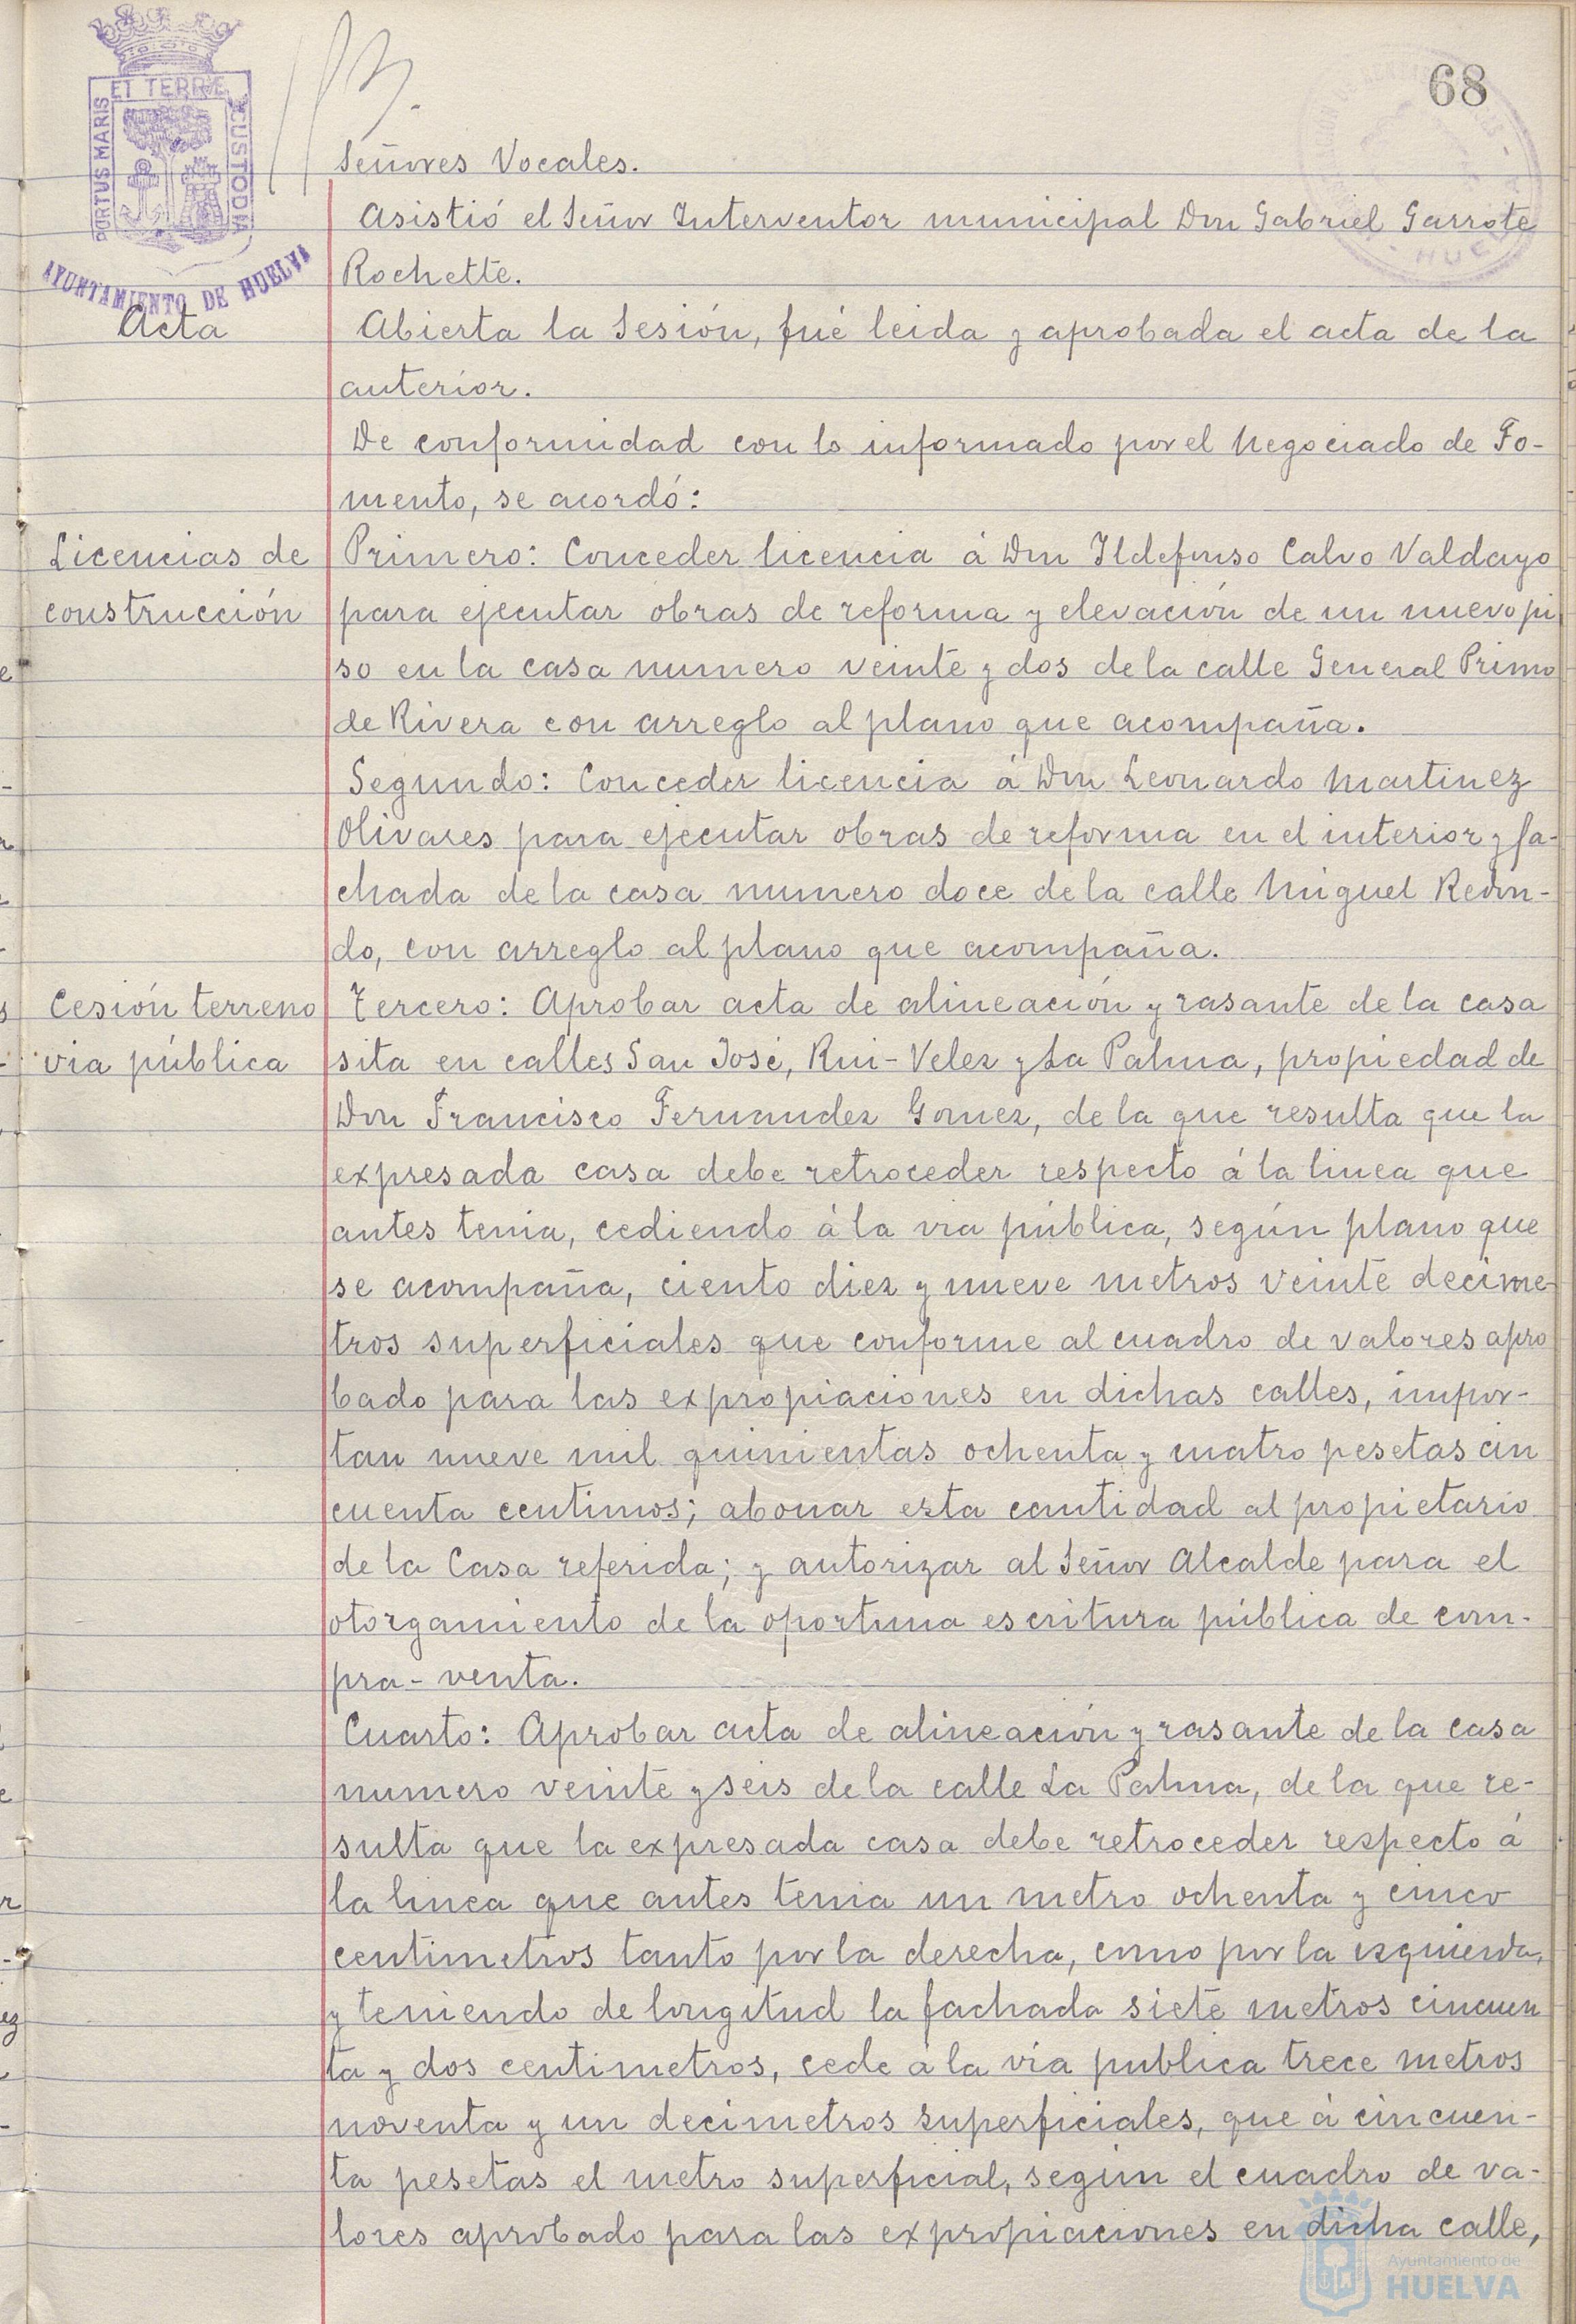 68
PORTUS MARIS ET TERRE CUSTODIA
AYUNTAMIENTO DE HUELVA
Señores Vocales.
Asistió el Señor Interventor municipal Don Gabriel Garrote
Rochette.
Acta
Abierta la Sesión, fué leida y aprobada el acta de la
anterior.
De conformidad con lo informado por el Negociado de Fo-
mento, se acordó:
Licencias de
construcción
Primero: Conceder licencia á Don Ildefonso Calvo Valdayo
para ejecutar obras de reforma y elevación de un nuevo pi
so en la casa numero veinte y dos de la calle General Primo
de Rivera con arreglo al plano que acompaña.
Segundo: Conceder licencia á Don Leonardo Martinez
Olivares para ejecutar obras de reforma en el interior y fa-
chada de la casa numero doce de la calle Miguel Redon-
do, con arreglo al plano que acompaña.
Cesión terreno
via pública
Tercero: Aprobar acta de alineación y rasante de la casa
sita en calles San José, Rui-Velez y La Palma, propiedad de
Don Francisco Fernandez Gomez, de la que resulta que la
expresada casa debe retroceder respecto á la linea que
antes tenia, cediendo á la via pública, según plano que
se acompaña, ciento diez y nueve metros veinte decime-
tros superficiales que conforme al cuadro de valores apro
bado para las expropiaciones en dichas calles, impor-
tan nueve mil quinientas ochenta y cuatro pesetas cin
cuenta centimos; abonar esta cantidad al propietario
de la Casa referida; y autorizar al Señor Alcalde para el
otorgamiento de la oportuna escritura pública de com-
pra-venta.
Cuarto: Aprobar acta de alineación y rasante de la casa
numero veinte y seis de la calle La Palma, de la que re-
sulta que la expresada casa debe retroceder respecto á
la linea que antes tenia un metro ochenta y cinco
centimetros tanto por la derecha, como por la izquierda,
y teniendo de longitud la fachada siete metros cincuen
ta y dos centimetros, cede á la via publica trece metros
noventa y un decimetros superficiales, que á cincuen-
ta pesetas el metro superficial, según el cuadro de va-
lores aprobado para las expropiaciones en dicha calle,
Ayuntamiento de
HUELVA